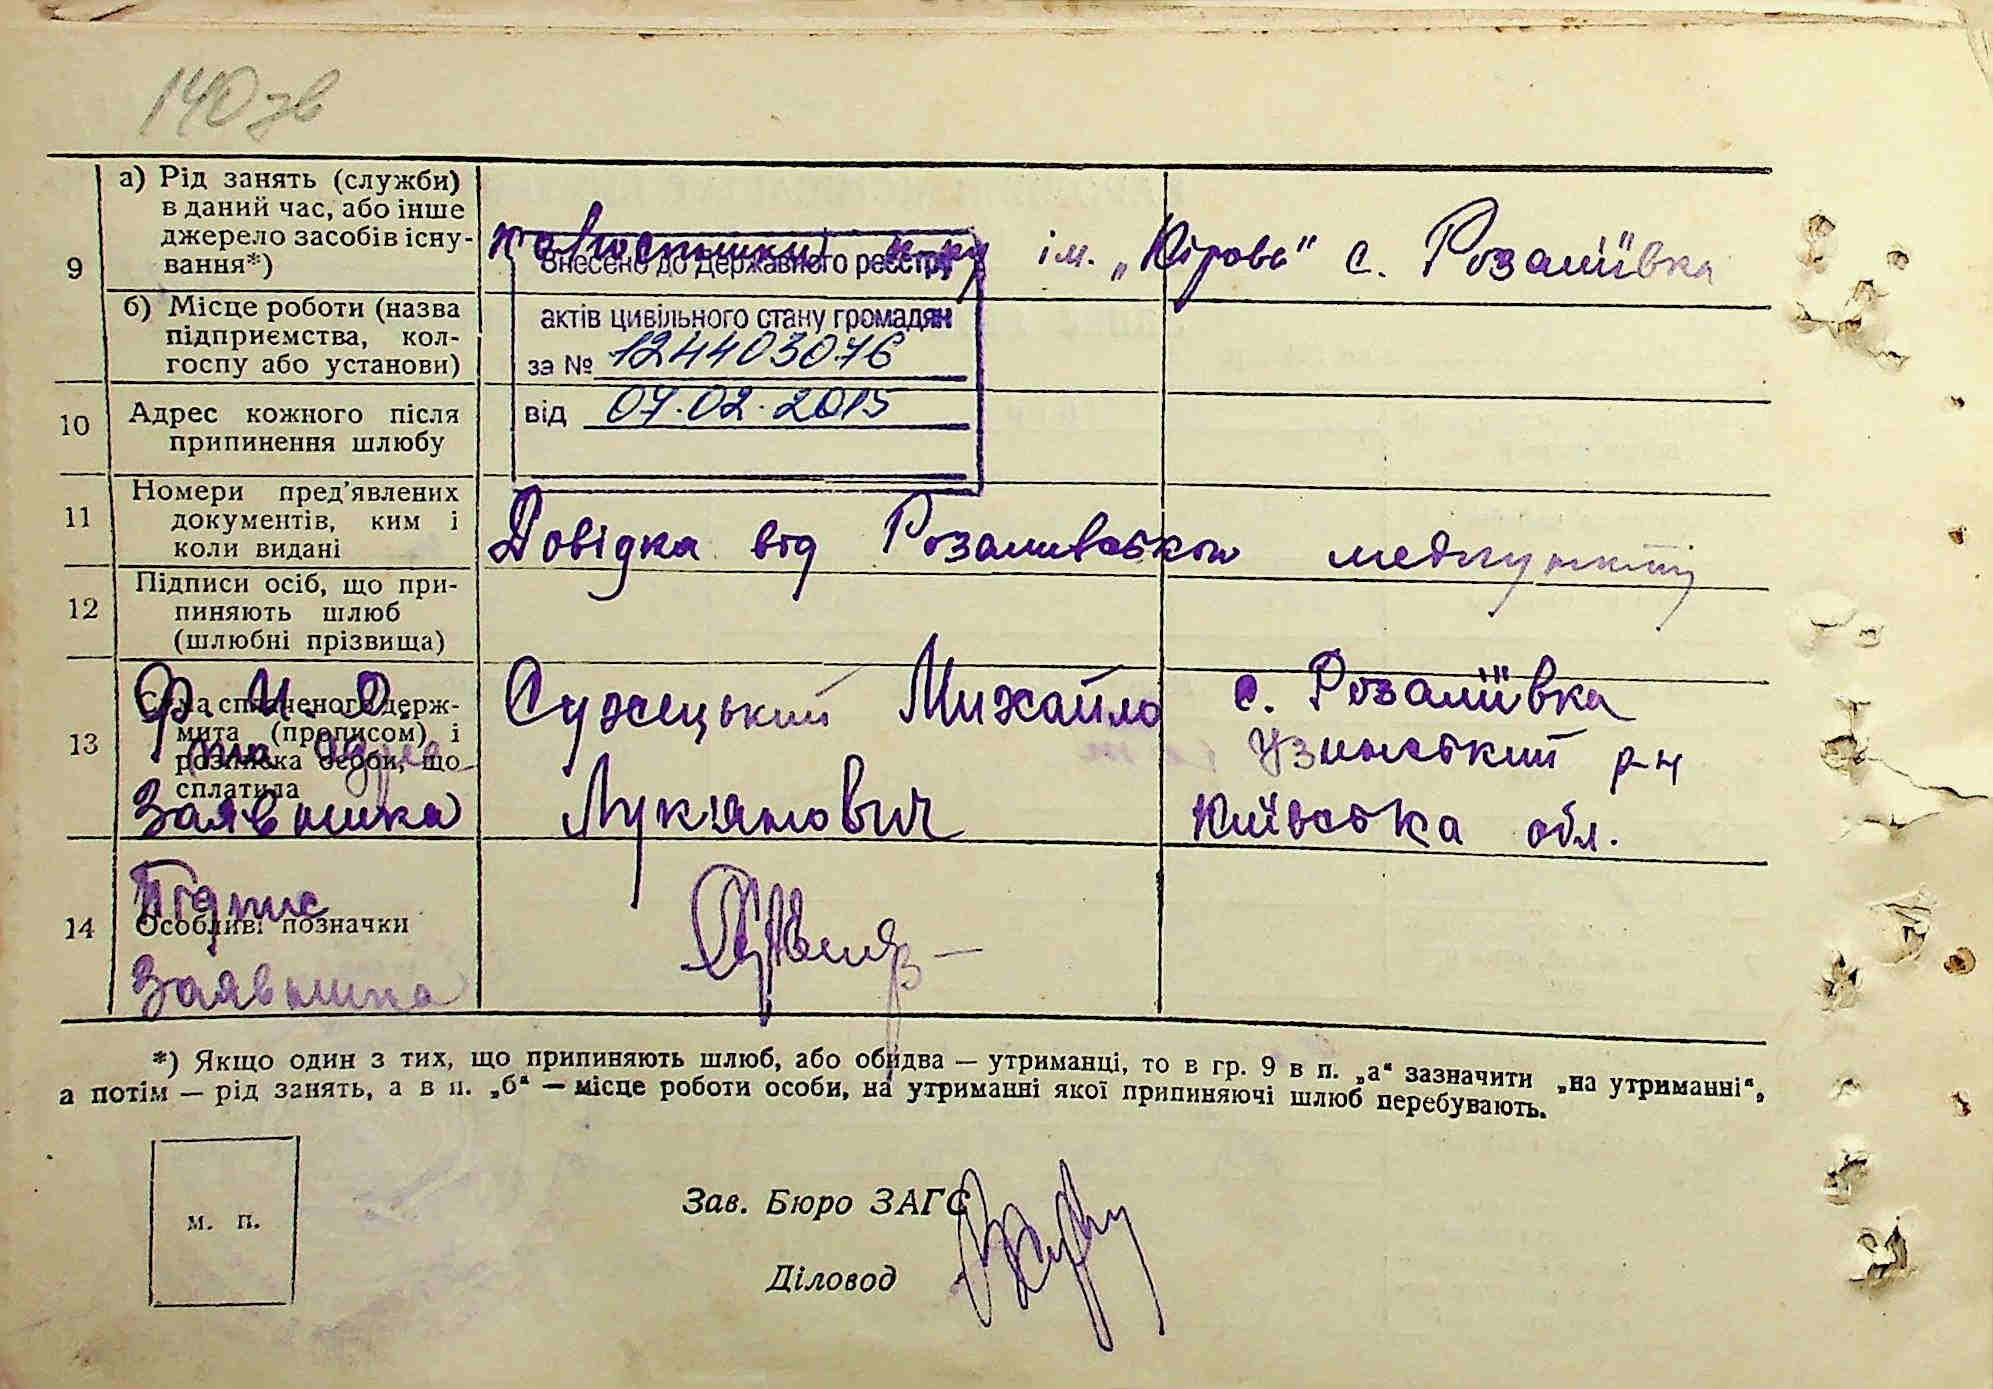 140 зв
9
а) Рід занять (служби)
в даний час, або інше
джерело засобів існу-
вання*)
ім. „Кірова" с. Розаліївка
б) Місце роботи (назва
підприємства, кол-
госпу або установи)
Внесено до Державного реєстру
актів цивільного стану громадян
за № 124403076
від 07.02.2015
10
Адрес кожного після
припинення шлюбу
11
Номери пред'явлених
документів, ким і
коли видані
Довідка від Розаливською медпункту
12
Підписи осіб, що при-
пиняють шлюб
(шлюбні прізвища)
13
Сума сплаченого держ-
мита (прописом) і
розписка особи, що
сплатила
Ф. И. О.
та адреса
Заявника
Сужецький Михайло
Лук'янович
с. Розаліївка
Узинський р-н
Київська обл.
14
Особливі позначки
Підпис
Заявника
*) Якщо один з тих, що припиняють шлюб, або обидва — утриманці, то в гр. 9 в п. „а" зазначити „на утриманні",
а потім — рід занять, а в п. „б" — місце роботи особи, на утриманні якої припиняючі шлюб перебувають.
м. п.
Зав. Бюро ЗАГС
Діловод